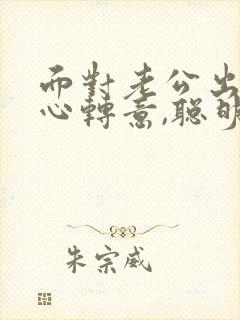 而對老公出
心轉意,聰明
朱宗威